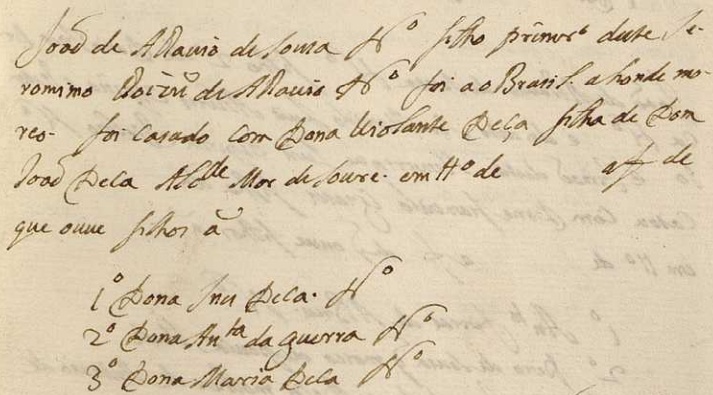 Joaõ de ARaujo de Sousa N.º filho primrº deste Je-
ronimo de ARaujo N.º foi ao Brasil ahonde mo-
reo. foi casado com Dona Violante Deça filha de Dom
Joaõ Deça Alcde Mor de Soure. em tt.º de a f de
que ouve filhos
1º Dona Deça. N.º
2º Dona Anta da guerra N.º
3º Dona Maria Deça N.º